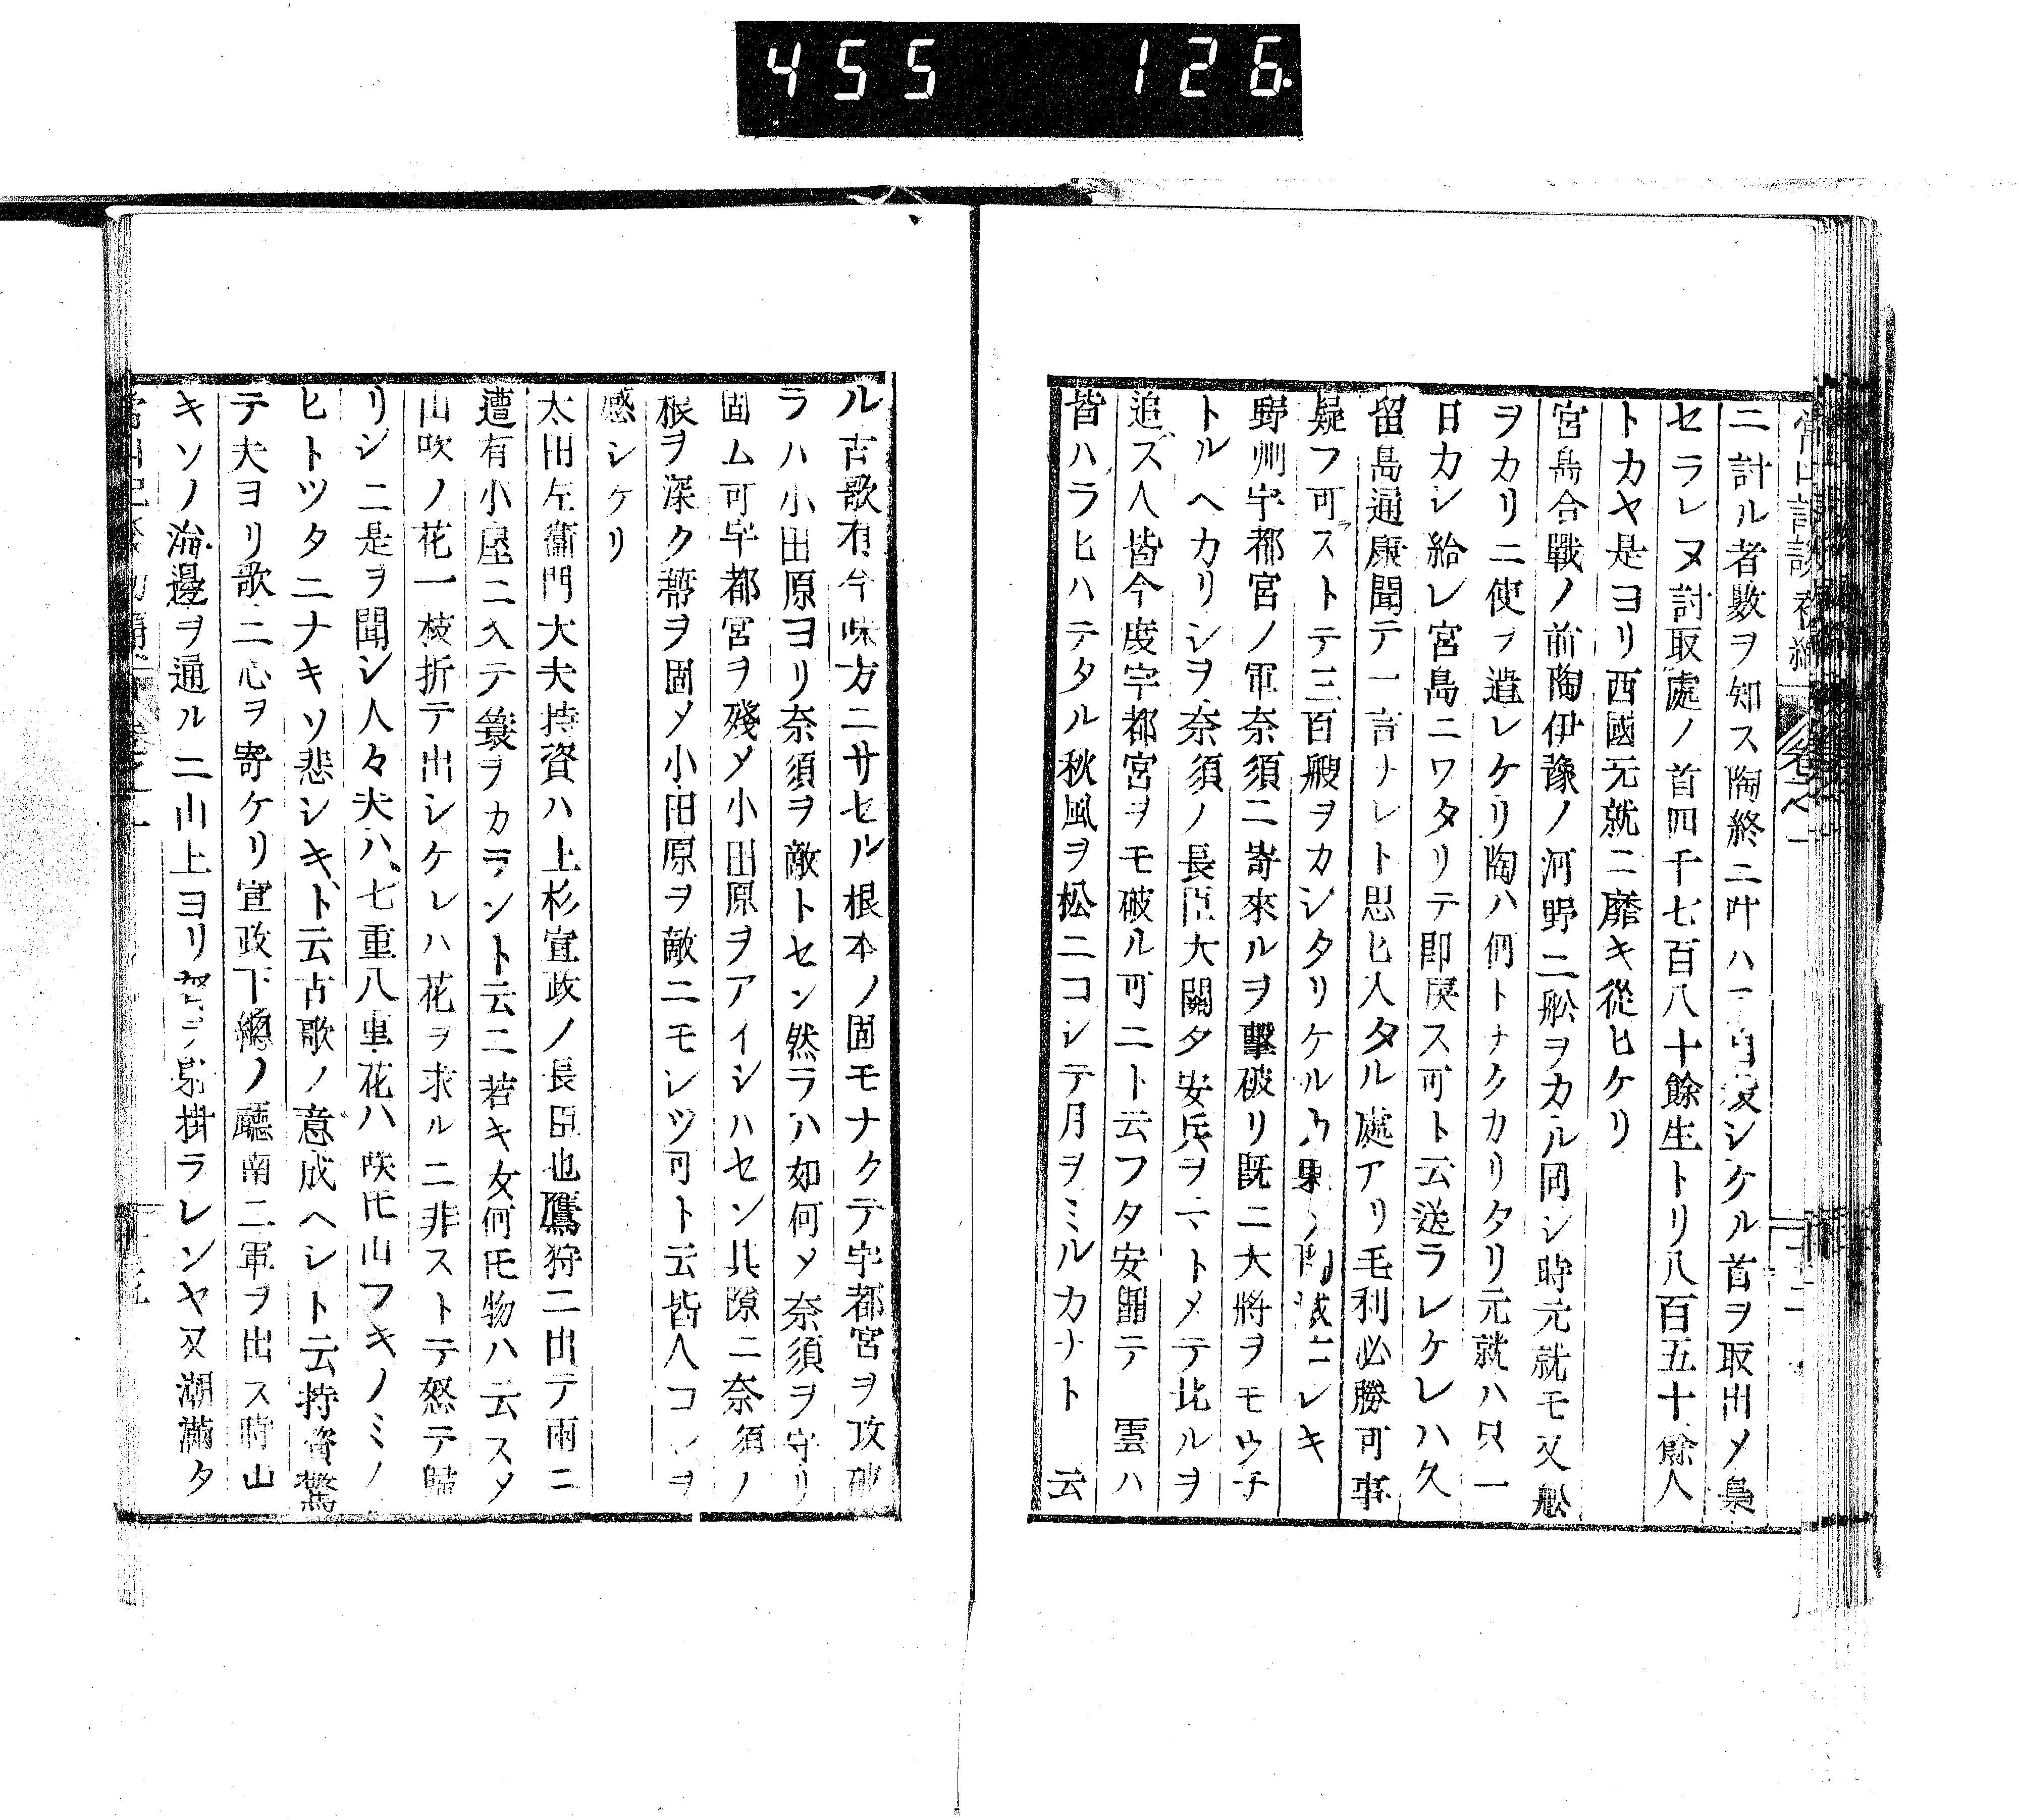 455 126
ニ計ル者數ヲ知ス陶終ニ叶ハ自殺シケル首ヲ取出メ梟
セラレヌ討取處ノ首四千七百八十餘生トリ八百五十餘人
トカヤ是ヨリ西國元就ニ靡キ從ヒケリ
宮島合戰ノ前陶伊豫ノ河野ニ舩ヲカル同シ時元就モ又舩
ヲカリニ使ヲ遣レケリ陶ハ何トナクカリタリ元就ハ只一
日カシ給レ宮島ニワタリテ即戻ス可ト云送ラレケレハ久
留島通康聞テ一言ナレト思ヒ入タル處アリ毛利必勝可事
疑フ可ラストテ三百艘ヲカシタリケルカ果ノ陶滅ニレキ
野州宇都宮ノ軍奈須ニ寄來ルヲ擊破リ既ニ大將ヲモウチ
トルヘカリシヲ奈須ノ長臣大關夕安兵ヲマトメテ北ルヲ
追ズ人皆今度宇都宮ヲモ破ル可ニト云フタ安聞テ 雲ハ
皆ハラヒハテタル秋風ヲ松ニコシテ月ヲミルカナト 云
ル古歌有今味方ニサセル根本ノ固モナクテ宇都宮ヲ攻破
ラハ小田原ヨリ奈須ヲ敵トセン然ラハ如何メ奈須ヲ守リ
固ム可宇都宮ヲ殘メ小田原ヲアイシハセン其隙ニ奈須ノ
根ヲ深ク蔕ヲ固メ小田原ヲ敵ニモシツ可ト云皆人コレヲ
感シケリ
太田左衞門大夫持資ハ上杉宣政ノ長臣也鷹狩ニ出テ雨ニ
遭有小屋ニ入テ簑ヲカラント云ニ若キ女何トモ物ハ云スメ
山吹ノ花一枝折テ出シケレハ花ヲ求ルニ非ストテ怒テ歸
リシニ是ヲ聞シ人々夫ハ七重八重花ハ咲トモ山フキノミノ
ヒトツタニナキソ悲シキト云古歌ノ意成ヘシト云持資驚
テ夫ヨリ歌ニ心ヲ寄ケリ宣政下總ノ廳南ニ軍ヲ出ス時山
キソノ海邊ヲ通ルニ山上ヨリ弩ヲ射掛ラレンヤ又潮滿タ